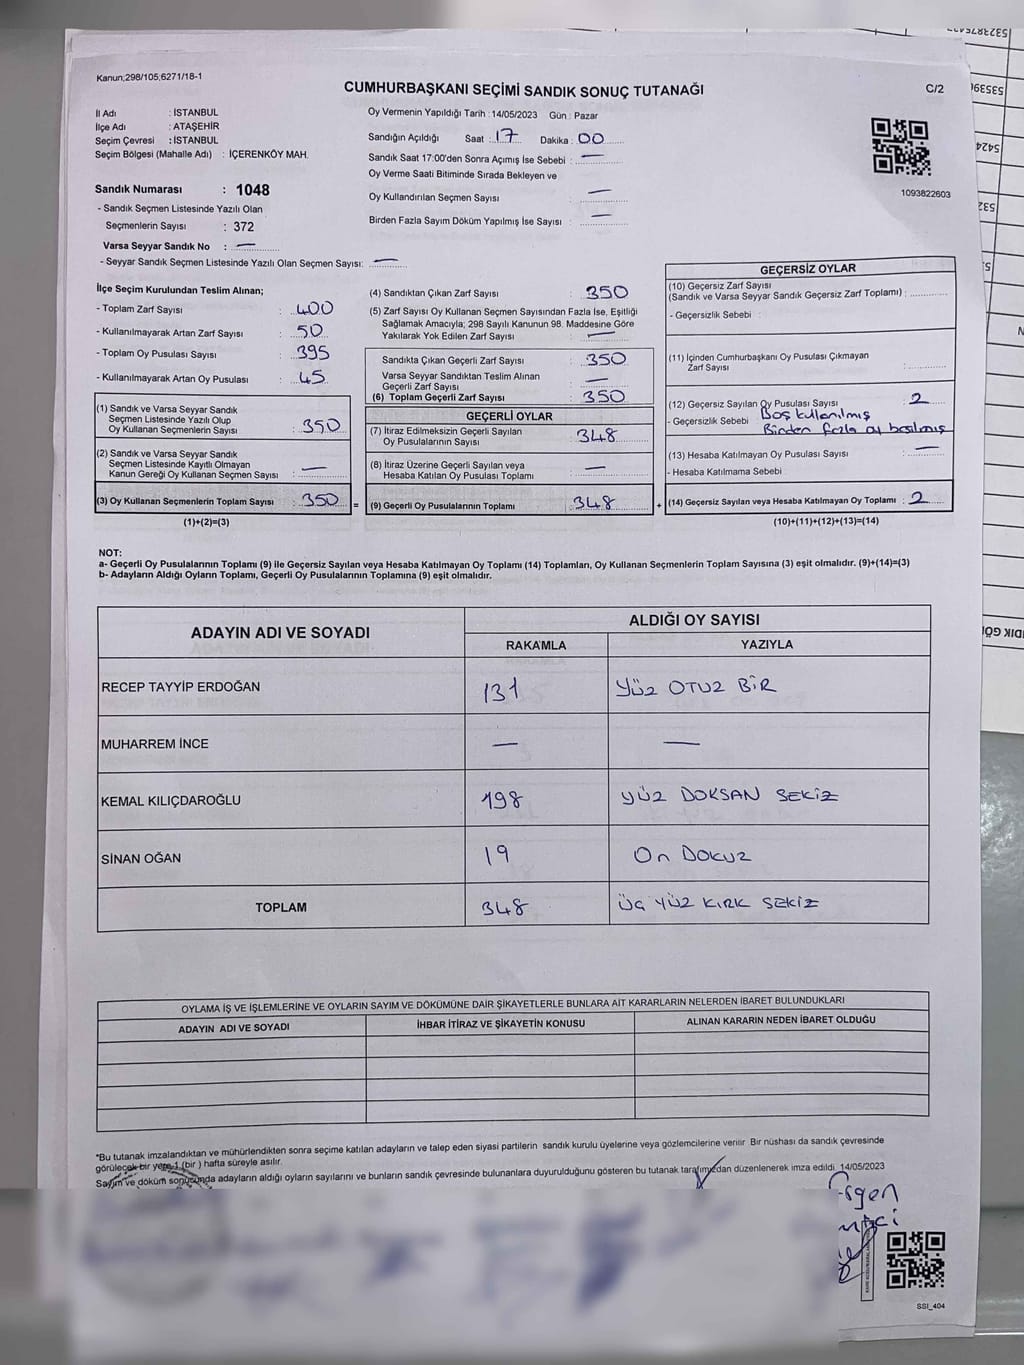 Kanun;298/105;6271/18-1
CUMHURBAŞKANI SEÇİMİ SANDIK SONUÇ TUTANAĞI
C/2
İl Adı : İSTANBUL
İlçe Adı : ATAŞEHİR
Seçim Çevresi : İSTANBUL
Seçim Bölgesi (Mahalle Adı) : İÇERENKÖY MAH.
Oy Vermenin Yapıldığı Tarih : 14/05/2023 Gün : Pazar
Sandığın Açıldığı Saat : 17 Dakika : 00
Sandık Saat 17:00'den Sonra Açımış İse Sebebi : —
Oy Verme Saati Bitiminde Sırada Bekleyen ve
Oy Kullandırılan Seçmen Sayısı : —
Birden Fazla Sayım Döküm Yapılmış İse Sayısı : —
1093822603
Sandık Numarası : 1048
- Sandık Seçmen Listesinde Yazılı Olan
Seçmenlerin Sayısı : 372
Varsa Seyyar Sandık No : —
- Seyyar Sandık Seçmen Listesinde Yazılı Olan Seçmen Sayısı: —
İlçe Seçim Kurulundan Teslim Alınan;
- Toplam Zarf Sayısı : 400
- Kullanılmayarak Artan Zarf Sayısı : 50
- Toplam Oy Pusulası Sayısı : 395
- Kullanılmayarak Artan Oy Pusulası : 45
(1) Sandık ve Varsa Seyyar Sandık
Seçmen Listesinde Yazılı Olup
Oy Kullanan Seçmenlerin Sayısı : 350
(2) Sandık ve Varsa Seyyar Sandık
Seçmen Listesinde Kayıtlı Olmayan
Kanun Gereği Oy Kullanan Seçmen Sayısı : —
(3) Oy Kullanan Seçmenlerin Toplam Sayısı : 350 =
(1)+(2)=(3)
(4) Sandıktan Çıkan Zarf Sayısı : 350
(5) Zarf Sayısı Oy Kullanan Seçmen Sayısından Fazla İse, Eşitliği
Sağlamak Amacıyla; 298 Sayılı Kanunun 98. Maddesine Göre
Yakılarak Yok Edilen Zarf Sayısı : —
Sandıkta Çıkan Geçerli Zarf Sayısı : 350
Varsa Seyyar Sandıktan Teslim Alınan
Geçerli Zarf Sayısı : —
(6) Toplam Geçerli Zarf Sayısı : 350
GEÇERLİ OYLAR
(7) İtiraz Edilmeksizin Geçerli Sayılan
Oy Pusulalarının Sayısı : 348
(8) İtiraz Üzerine Geçerli Sayılan veya
Hesaba Katılan Oy Pusulası Toplamı : —
(9) Geçerli Oy Pusulalarının Toplamı : 348 +
GEÇERSİZ OYLAR
(10) Geçersiz Zarf Sayısı
(Sandık ve Varsa Seyyar Sandık Geçersiz Zarf Toplamı) :
- Geçersizlik Sebebi :
(11) İçinden Cumhurbaşkanı Oy Pusulası Çıkmayan
Zarf Sayısı :
(12) Geçersiz Sayılan Oy Pusulası Sayısı : 2
- Geçersizlik Sebebi : Boş kullanılmış
Birden fazla oy basılmış
(13) Hesaba Katılmayan Oy Pusulası Sayısı : —
- Hesaba Katılmama Sebebi
(14) Geçersiz Sayılan veya Hesaba Katılmayan Oy Toplamı : 2
(10)+(11)+(12)+(13)=(14)
NOT:
a- Geçerli Oy Pusulalarının Toplamı (9) ile Geçersiz Sayılan veya Hesaba Katılmayan Oy Toplamı (14) Toplamları, Oy Kullanan Seçmenlerin Toplam Sayısına (3) eşit olmalıdır. (9)+(14)=(3)
b- Adayların Aldığı Oyların Toplamı, Geçerli Oy Pusulalarının Toplamına (9) eşit olmalıdır.
ADAYIN ADI VE SOYADI
ALDIĞI OY SAYISI
RAKAMLA YAZIYLA
RECEP TAYYİP ERDOĞAN 131 YÜZ OTUZ BİR
MUHARREM İNCE — —
KEMAL KILIÇDAROĞLU 198 YÜZ DOKSAN SEKİZ
SİNAN OĞAN 19 On DOKUZ
TOPLAM 348 ÜÇ YÜZ KIRK SEKİZ
OYLAMA İŞ VE İŞLEMLERİNE VE OYLARIN SAYIM VE DÖKÜMÜNE DAİR ŞİKAYETLERLE BUNLARA AİT KARARLARIN NELERDEN İBARET BULUNDUKLARI
ADAYIN ADI VE SOYADI İHBAR İTİRAZ VE ŞİKAYETİN KONUSU ALINAN KARARIN NEDEN İBARET OLDUĞU
*Bu tutanak imzalandıktan ve mühürlendikten sonra seçime katılan adayların ve talep eden siyasi partilerin sandık kurulu üyelerine veya gözlemcilerine verilir Bir nüshası da sandık çevresinde
görülecek bir yere 1 (bir ) hafta süreyle asılır.
Sayım ve döküm sonucunda adayların aldığı oyların sayılarını ve bunların sandık çevresinde bulunanlara duyurulduğunu gösteren bu tutanak tarafımızdan düzenlenerek imza edildi. 14/05/2023
SSI_404